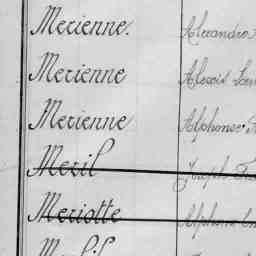 Merienne. Alexandre
Merienne Alexis
Merienne Alphonse
Meril Joseph
Meriotte Alphonse